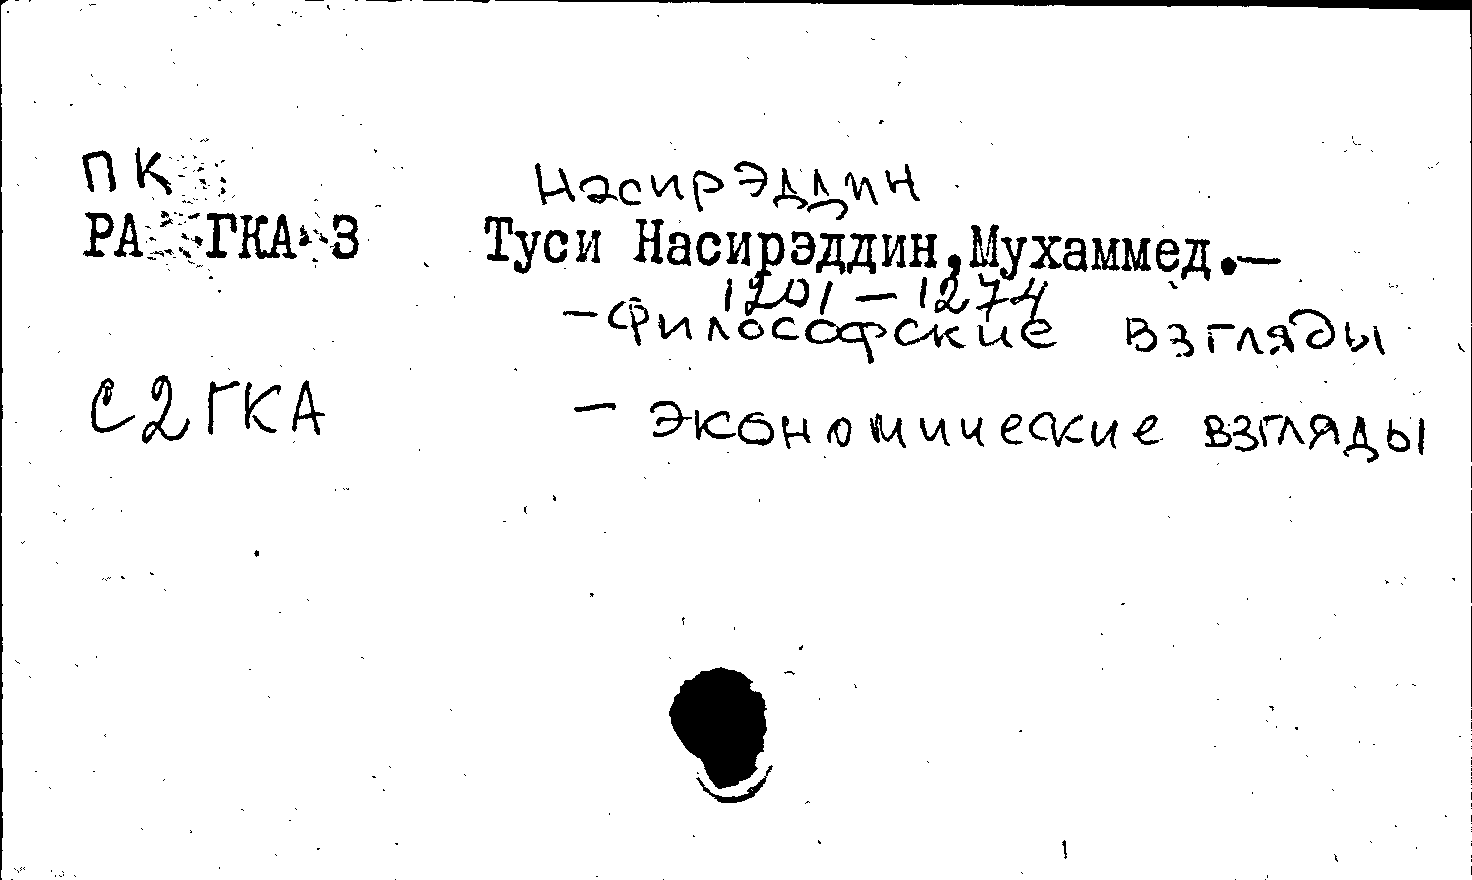 ПК Насирэддин
РА ГКА З Туси Насирэддин, Мухаммед.—
1201 – 1274
– Философские взгляды
С2ГКА – экономические взгляды